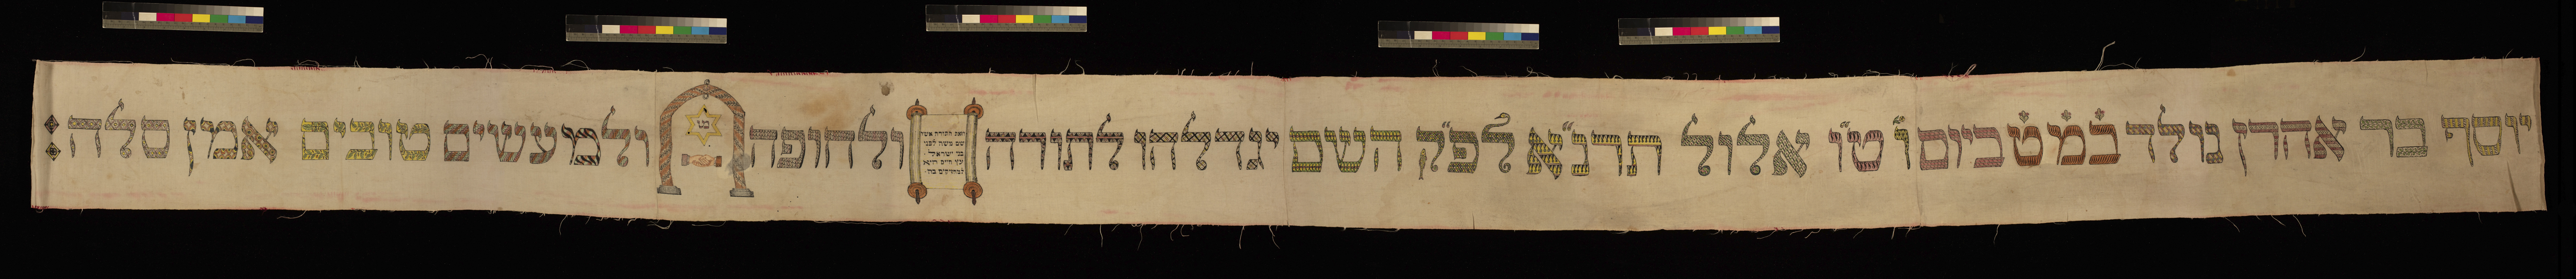 יוסף בר אהרן נולד במט ביום ו׳ ט״ו אלול תרנ״א לפ״ק השם יגדלהו לתורה
וזאת התורה אשר
שם משה לפני
בני ישראל
עץ חיים היא
למחזיקים בה
ולחופה
מט
ולמעשים טובים אמן סלה